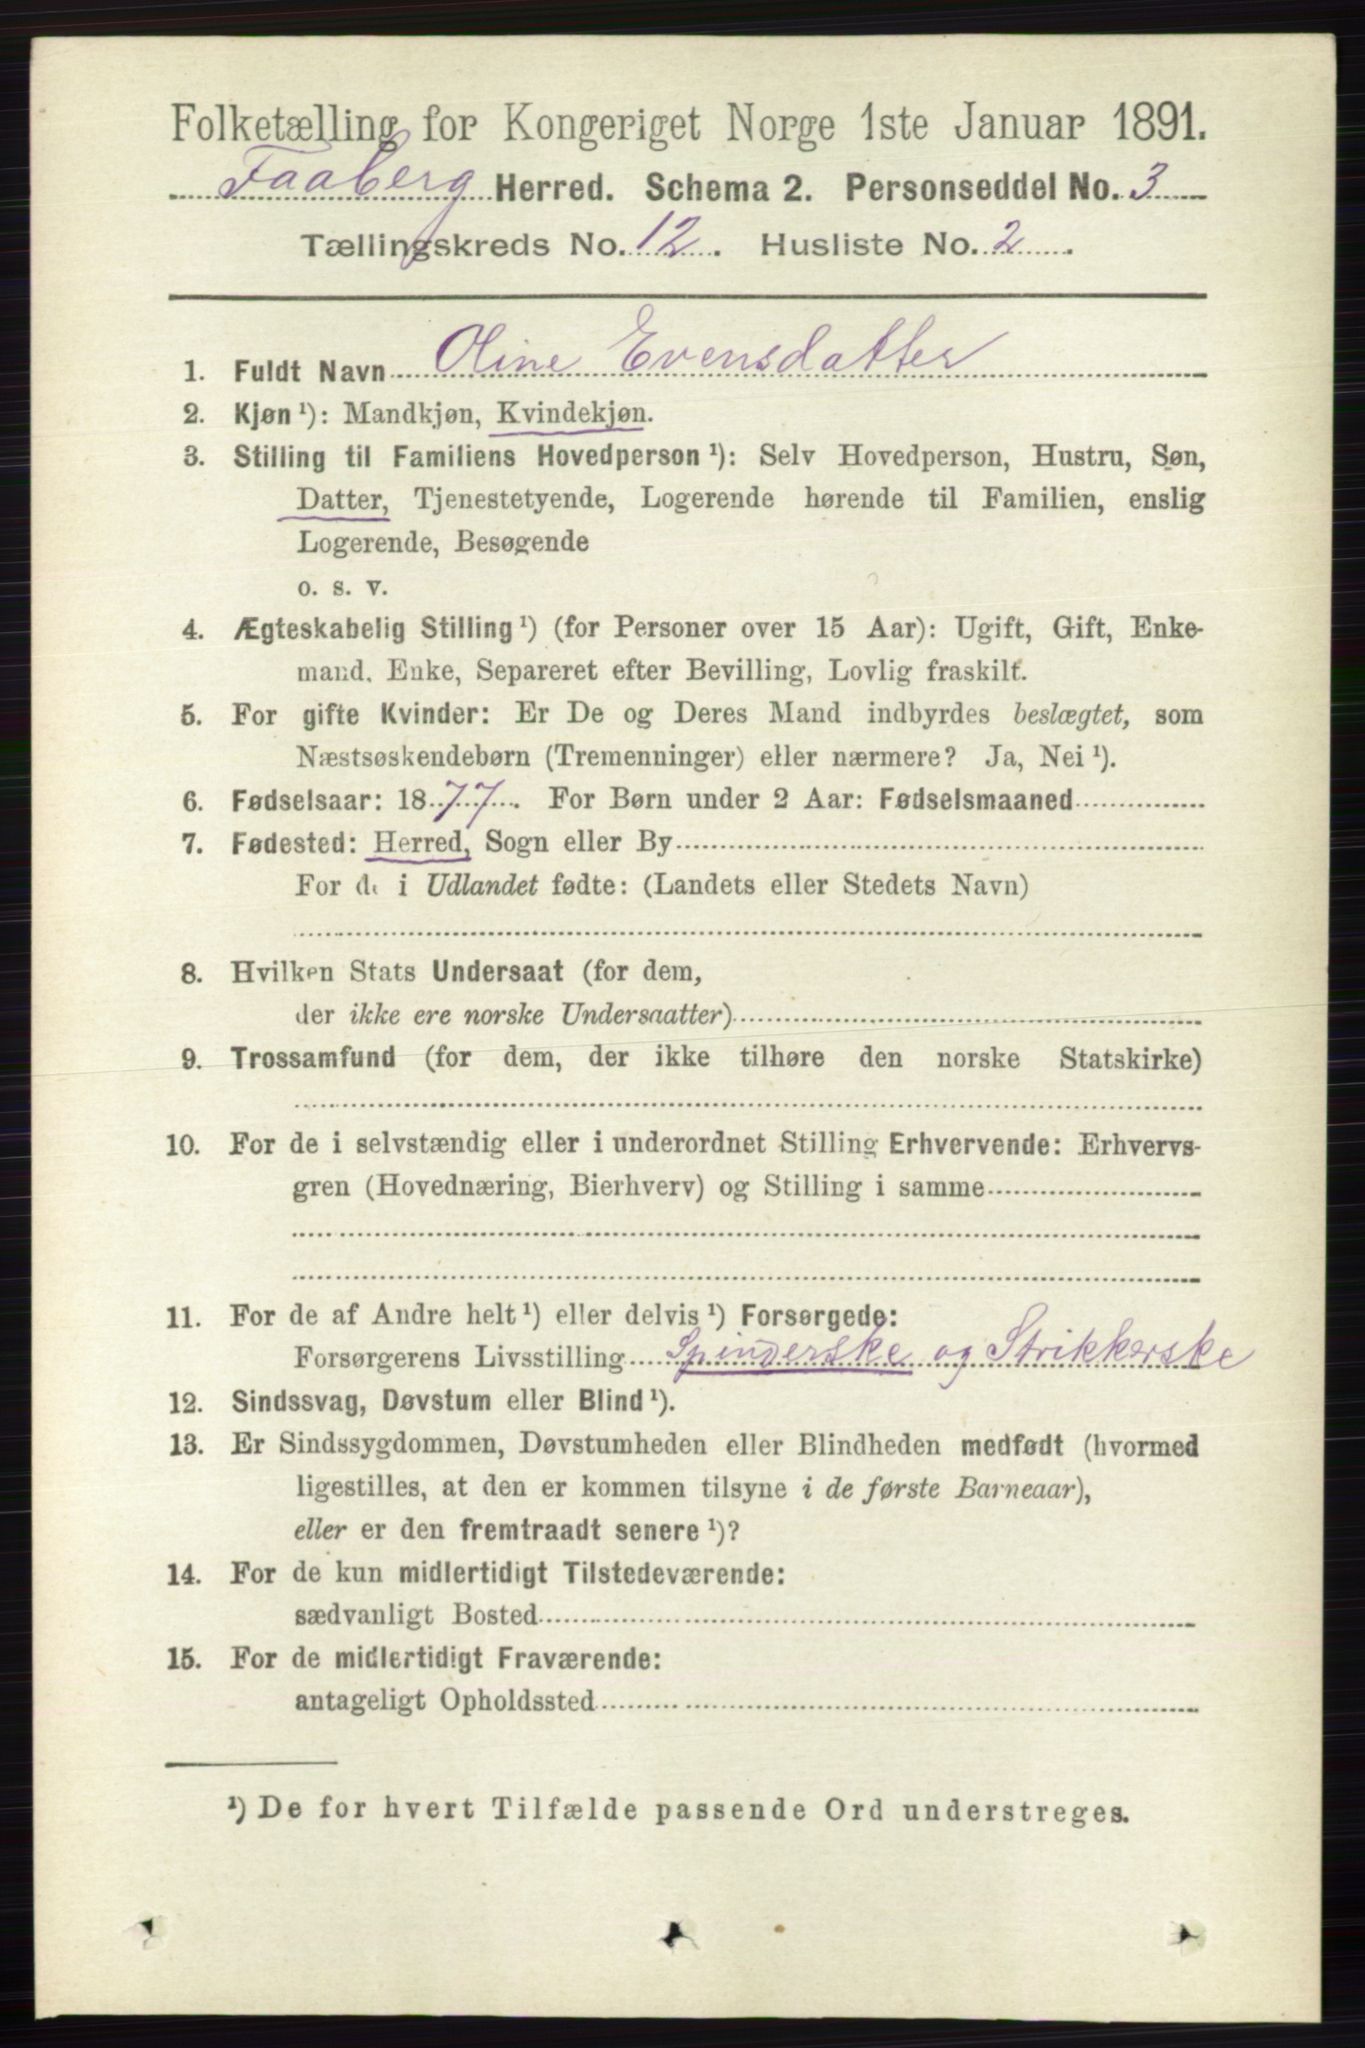 Folketælling for Kongeriget Norge 1ste Januar 1891.
Faaberg Herred. Schema 2. Personseddel No. 3
Tællingskreds No. 12. Husliste No. 2.
1. Fuldt Navn Oline Evensdatter
2. Kjøn ¹): Mandkjøn, Kvindekjøn.
3. Stilling til Familiens Hovedperson ¹): Selv Hovedperson, Hustru, Søn,
Datter, Tjenestetyende, Logerende hørende til Familien, enslig
Logerende, Besøgende
o. s. v.
4. Ægteskabelig Stilling ¹) (for Personer over 15 Aar): Ugift, Gift, Enke-
mand, Enke, Separeret efter Bevilling, Lovlig fraskilt.
5. For gifte Kvinder: Er De og Deres Mand indbyrdes beslægtet, som
Næstsøskendebørn (Tremenninger) eller nærmere? Ja, Nei ¹).
6. Fødselsaar: 1877. For Børn under 2 Aar: Fødselsmaaned
7. Fødested: Herred, Sogn eller By
For de i Udlandet fødte: (Landets eller Stedets Navn)
8. Hvilken Stats Undersaat (for dem,
der ikke ere norske Undersaatter)
9. Trossamfund (for dem, der ikke tilhøre den norske Statskirke)
10. For de i selvstændig eller i underordnet Stilling Erhvervende: Erhvervs-
gren (Hovednæring, Bierhverv) og Stilling i samme
11. For de af Andre helt ¹) eller delvis ¹) Forsørgede:
Forsørgerens Livsstilling Spinderske og Strikkerske
12. Sindssvag, Døvstum eller Blind ¹).
13. Er Sindssygdommen, Døvstumheden eller Blindheden medfødt (hvormed
ligestilles, at den er kommen tilsyne i de første Barneaar),
eller er den fremtraadt senere ¹)?
14. For de kun midlertidigt Tilstedeværende:
sædvanligt Bosted
15. For de midlertidigt Fraværende:
antageligt Opholdssted
¹) De for hvert Tilfælde passende Ord understreges.